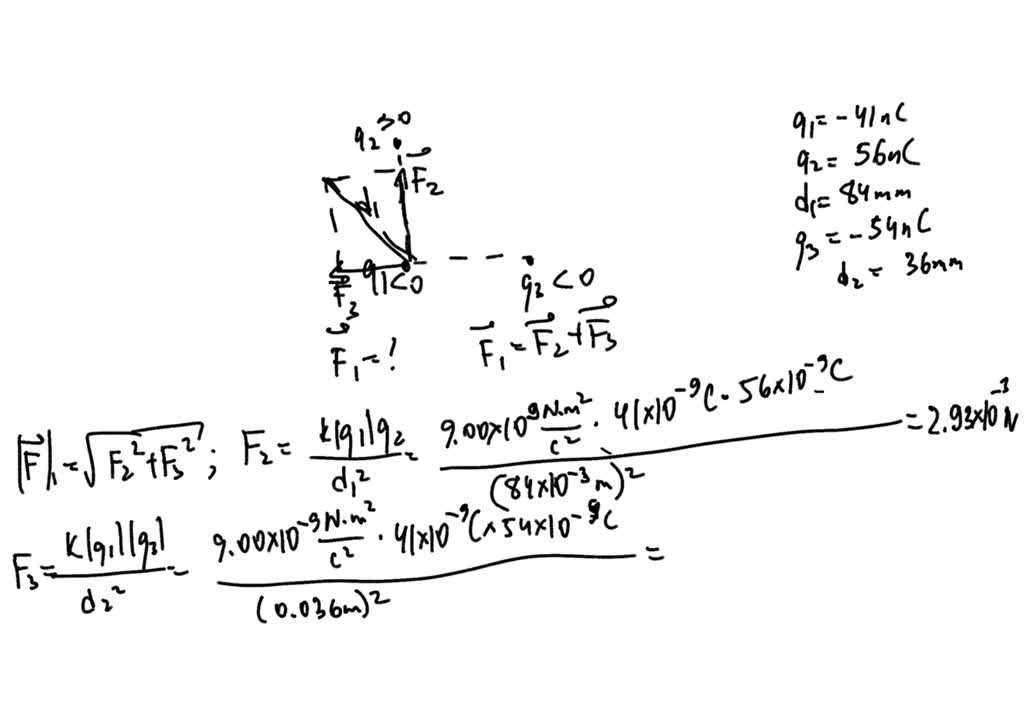 q₂>0
F₂
d₁
q₁<0
F₃
q₃<0
F₁=?
F₁=F₂+F₃
q₁=-41nC
q₂=56nC
d₁=84mm
q₃=-54nC
d₂=36mm
|F|₁=√F₂²+F₃²; F₂= k|q₁|q₂/d₁² = 9.00×10⁹ N.m²/c² · 41×10⁻⁹C · 56×10⁻⁹C/(84×10⁻³m)² =2.93×10⁻³N
F₃= k|q₁||q₃|/d₂² = 9.00×10⁻⁹ N.m²/c² · 41×10⁻⁹C×54×10⁻⁹C/(0.036m)² =